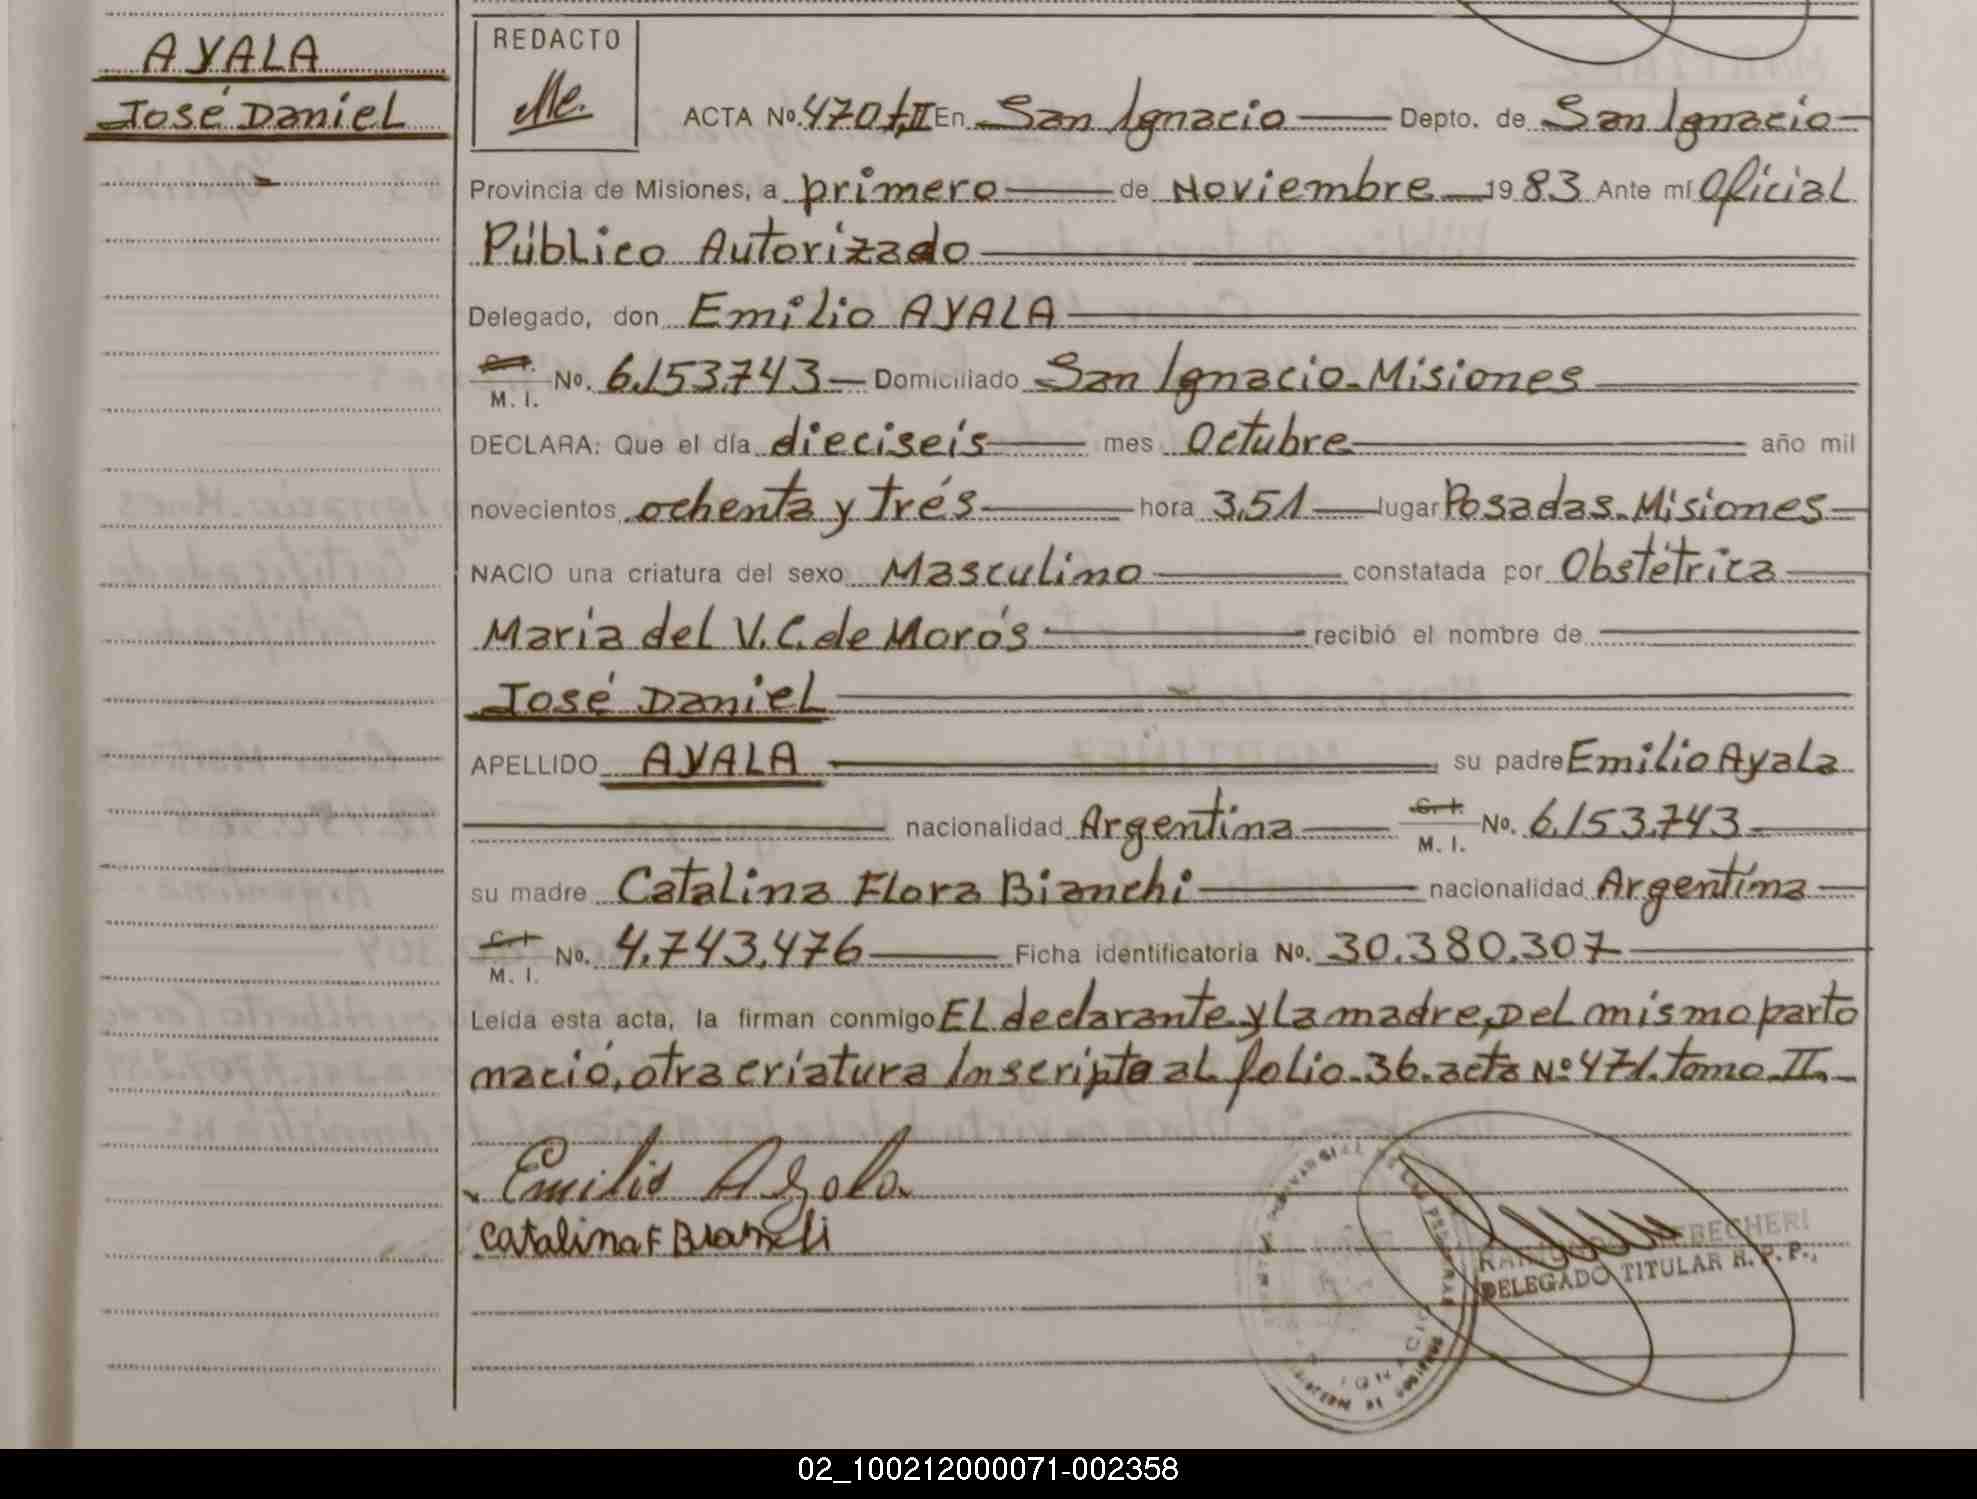 AYALA
José Daniel
REDACTO
ACTA Nº 470 t,II En San Ignacio Depto. de San Ignacio
Provincia de Misiones, a primero de Noviembre 1983 Ante mí Oficial
Público Autorizado
Delegado, don Emilio AYALA
C.I. M. I. Nº. 6.153.743 Domiciliado San Ignacio - Misiones
DECLARA: Que el día dieciseís mes Octubre año mil
novecientos ochenta y trés hora 3,51 lugar Posadas - Misiones
NACIO una criatura del sexo Masculino constatada por Obstétrica
María del V. C. de Morós recibió el nombre de
José Daniel
APELLIDO AYALA su padre Emilio Ayala
nacionalidad Argentina C. I. M. I. Nº. 6.153.743
su madre Catalina Flora Bianchi nacionalidad Argentína
C. I. M. I. Nº. 4.743.476 Ficha identificatoria Nº. 30.380.307
Leída esta acta, la firman conmigo EL declarante y La madre, Del mismo parto
nació, otra criatura Inscripta al folio - 36 - acta Nº 471. tomo II.-
Emilio Ayala
Catalina F Bianchi
DELEGADO TITULAR R. P. P.,
02_100212000071-002358